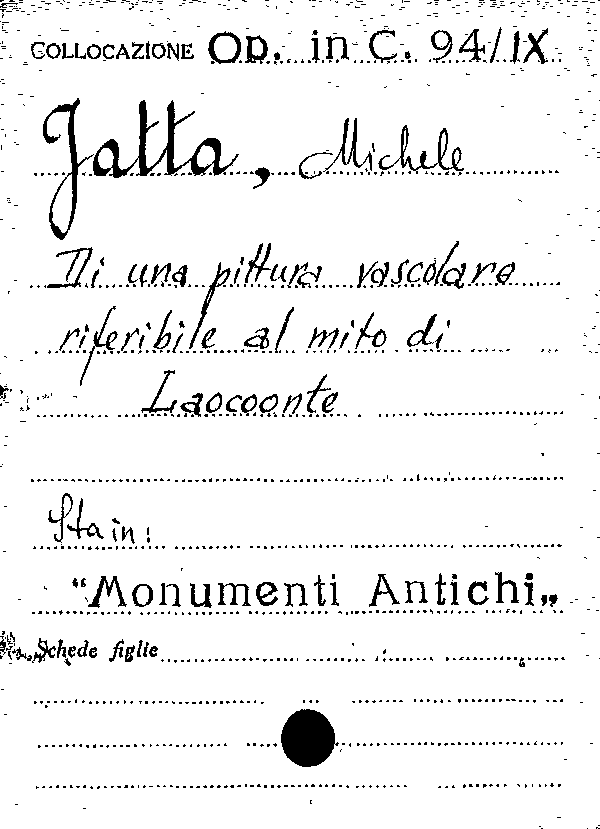 COLLOCAZIONE OP. in C. 94/IX
Jatta, Michele
Di una pittura vascolare
riferibile al mito di
Laocoonte
Sta in:
"Monumenti Antichi„
Schede figlie